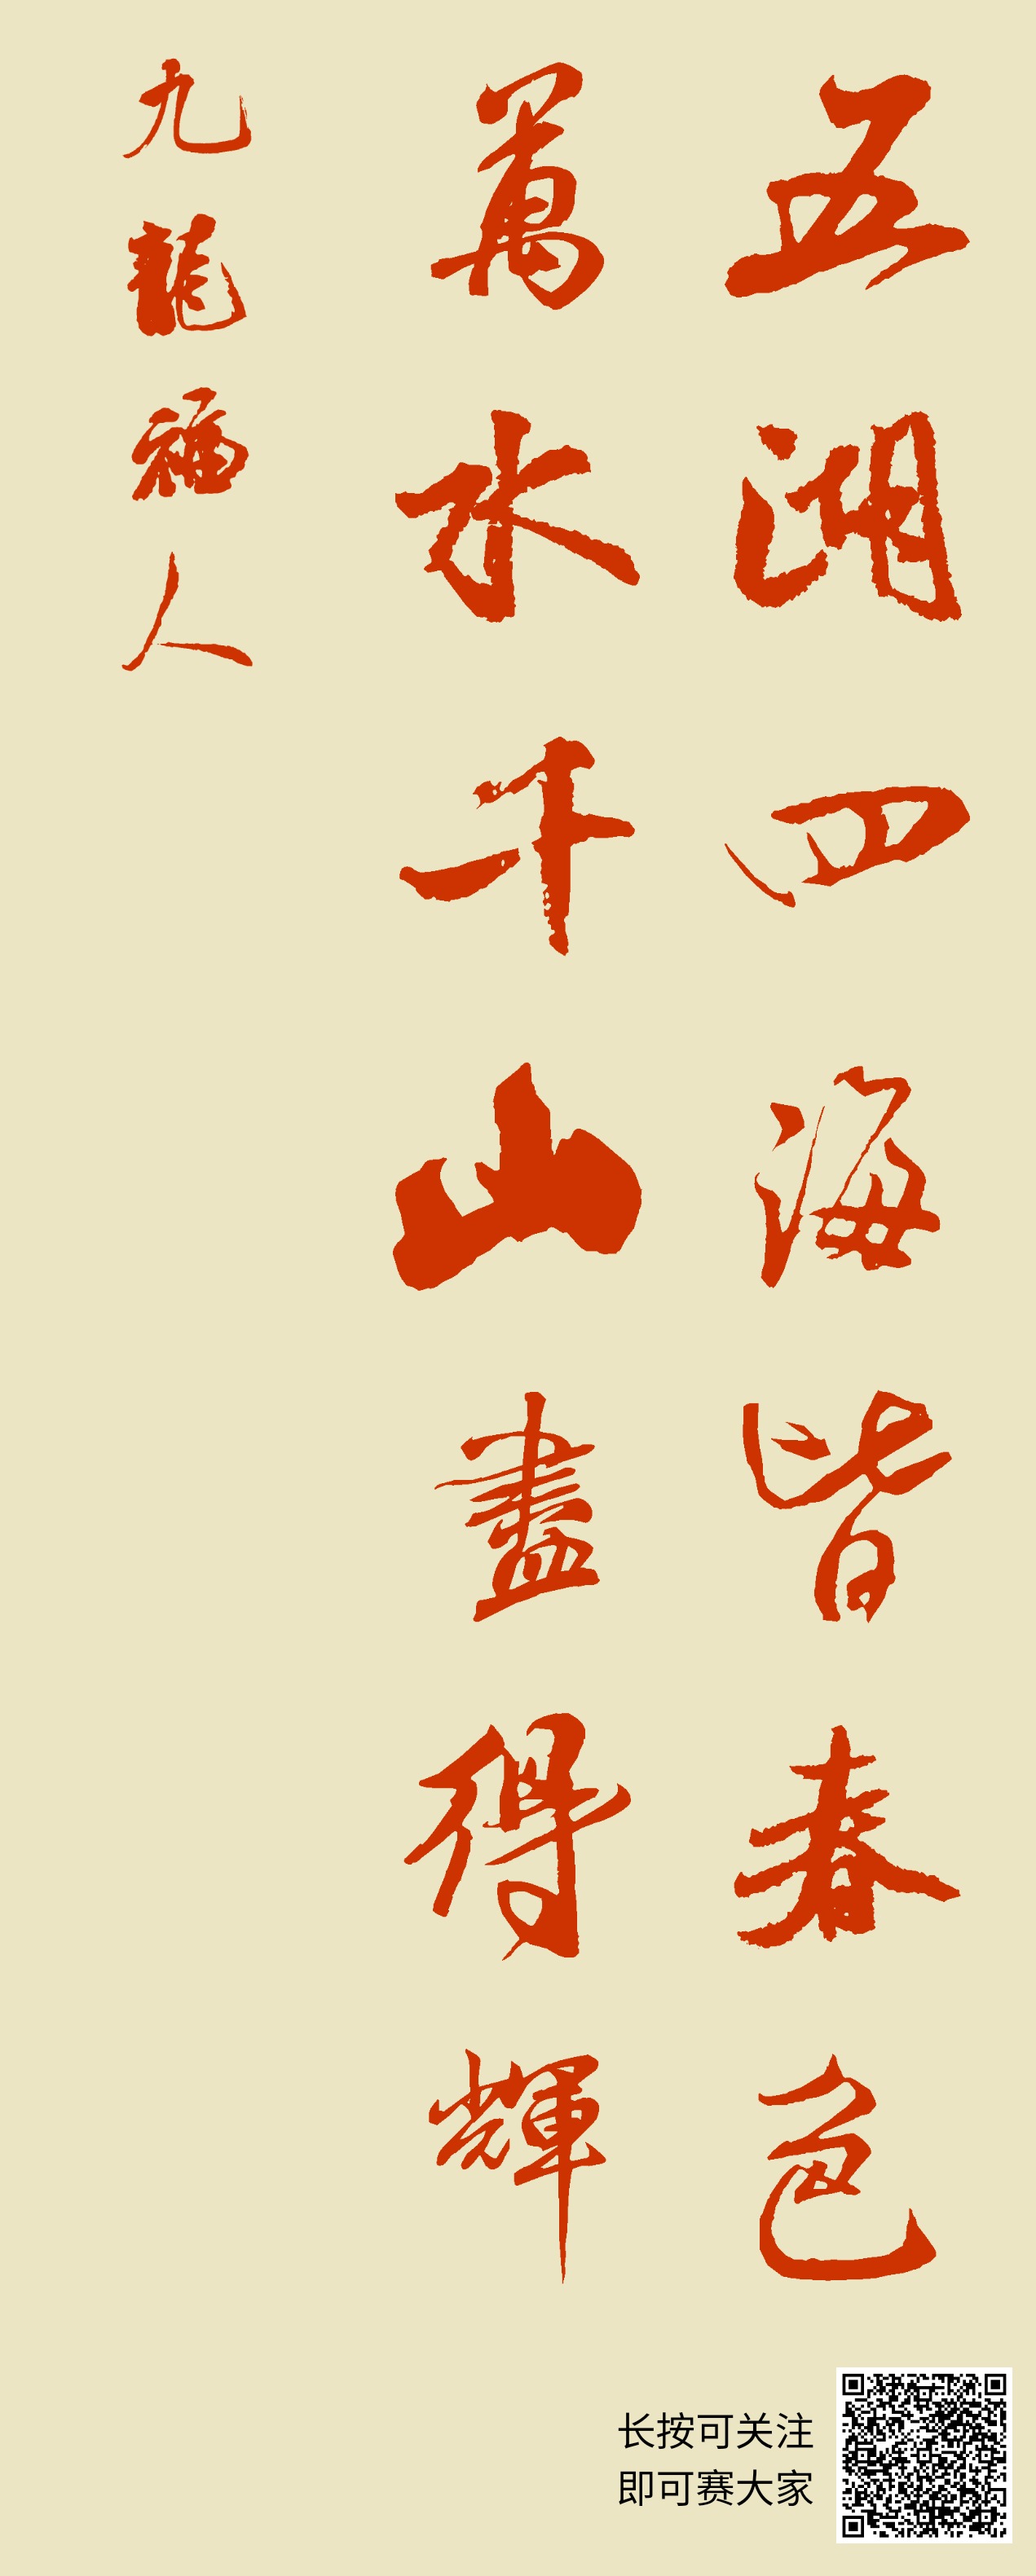 五湖四海皆春色
萬水千山盡得輝
九龍福人
长按可关注
即可赛大家